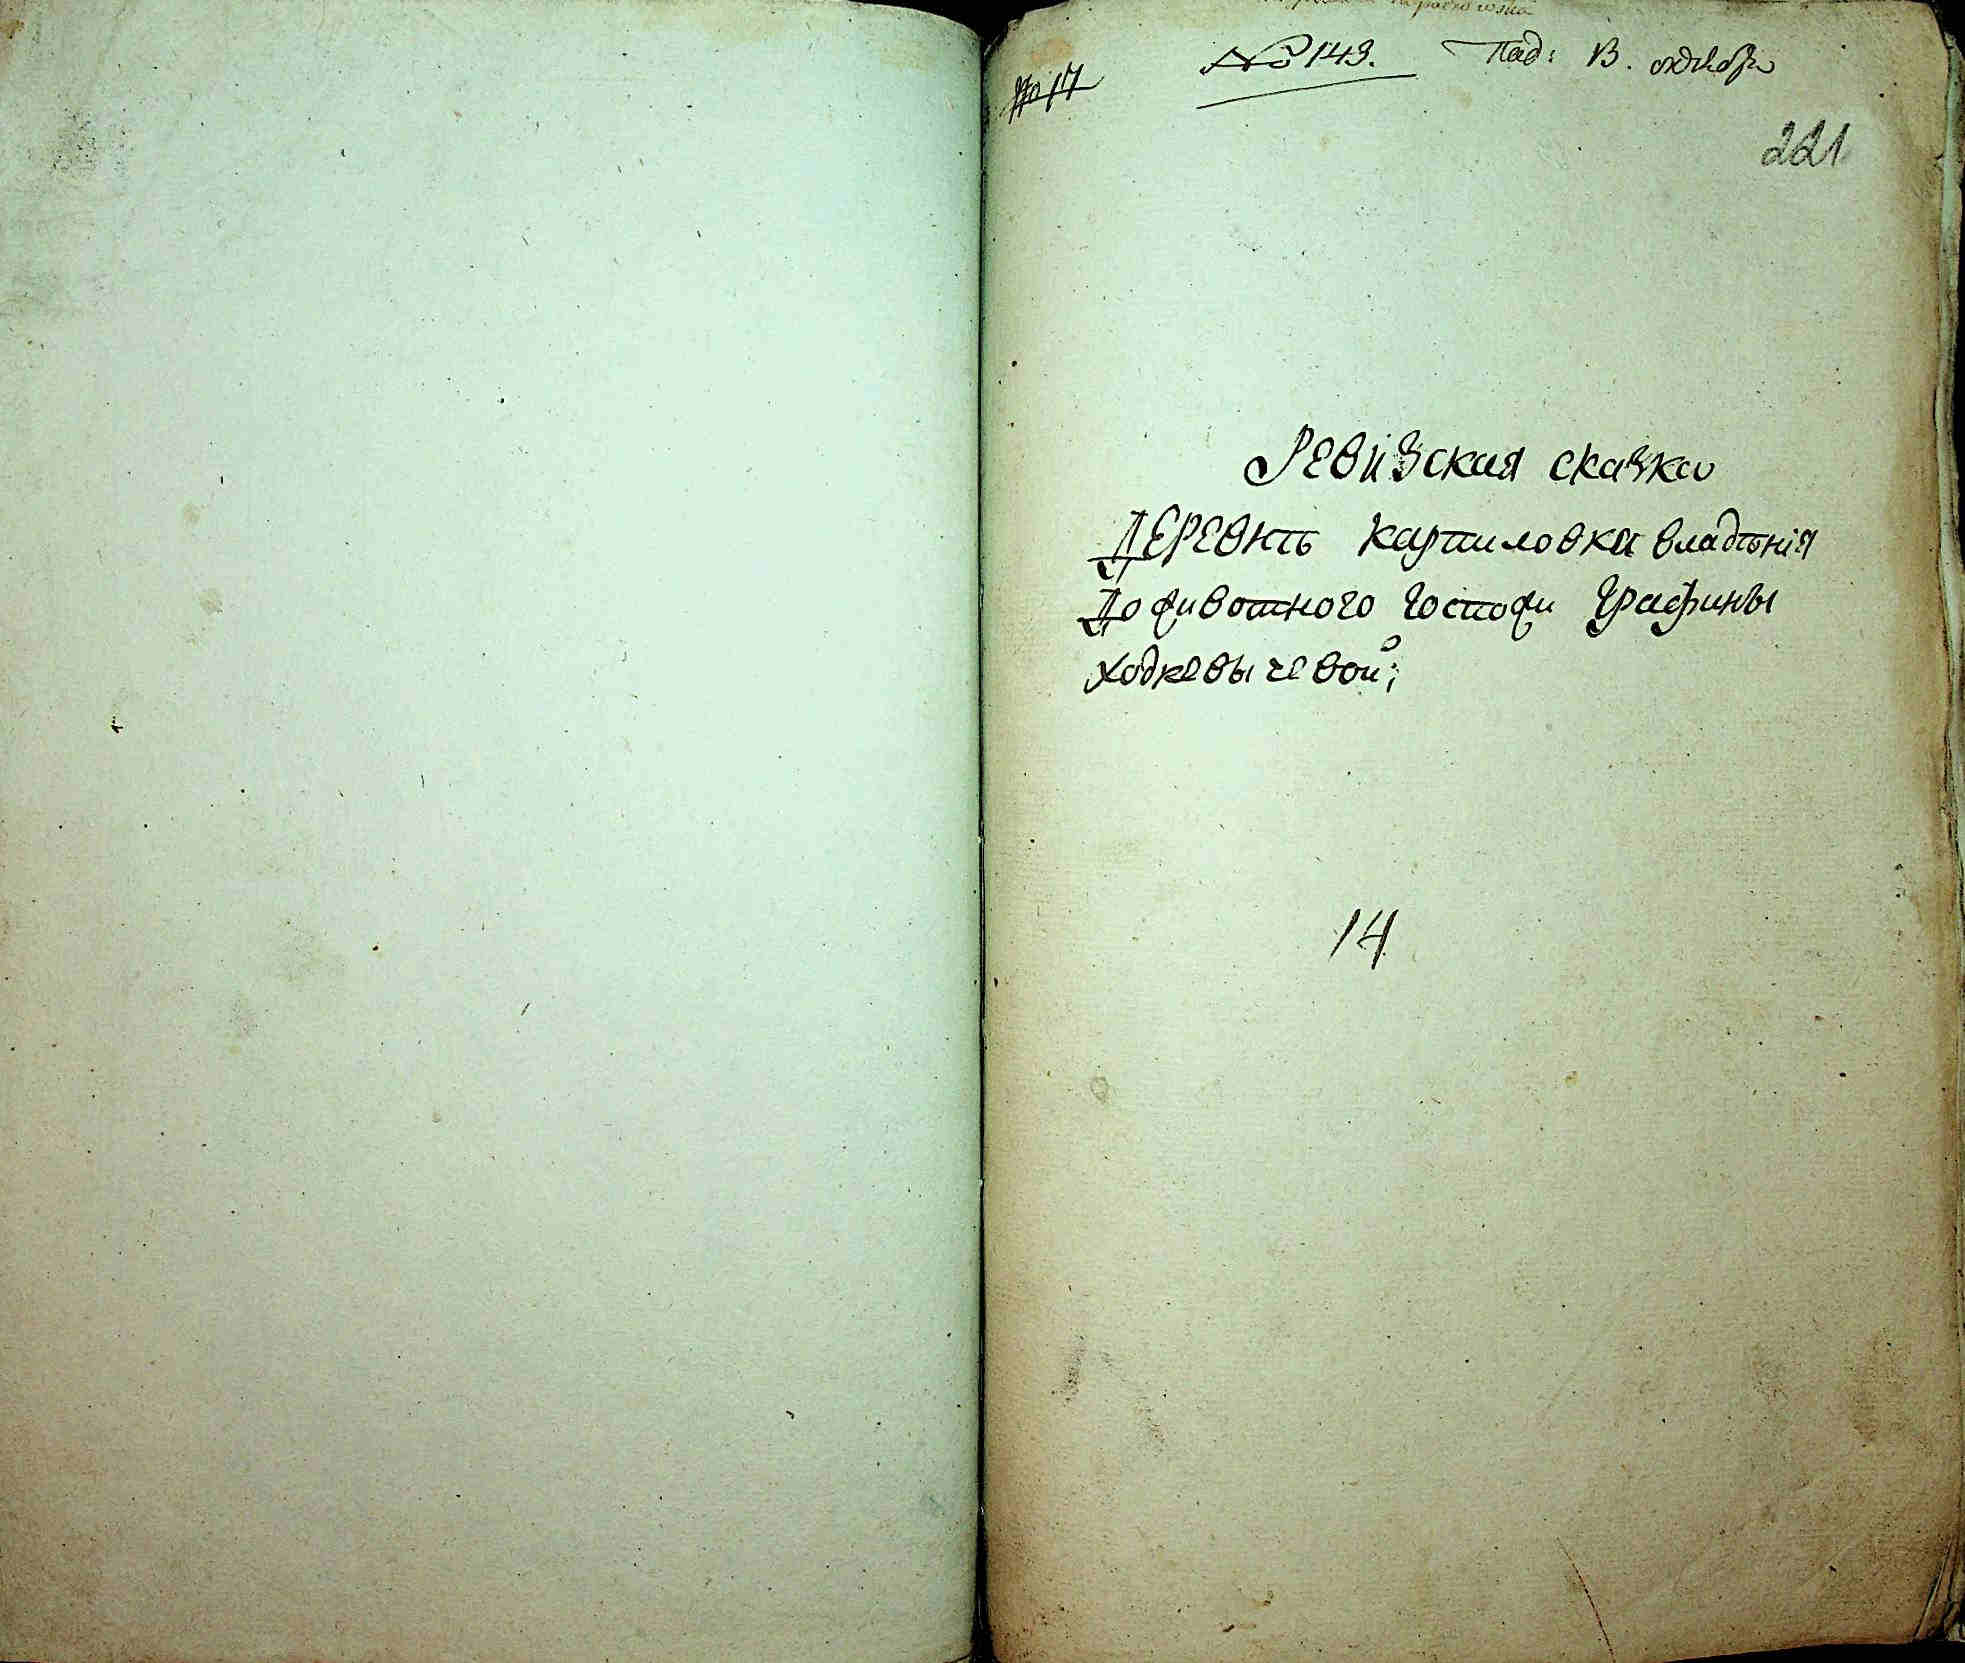 № 143. Пад: 13. октября
№ 17
221
Ревизская сказка
Деревнѣ картиловка владѣнія
Доживотного Госпожи Графины
Ходкевычевой;
14